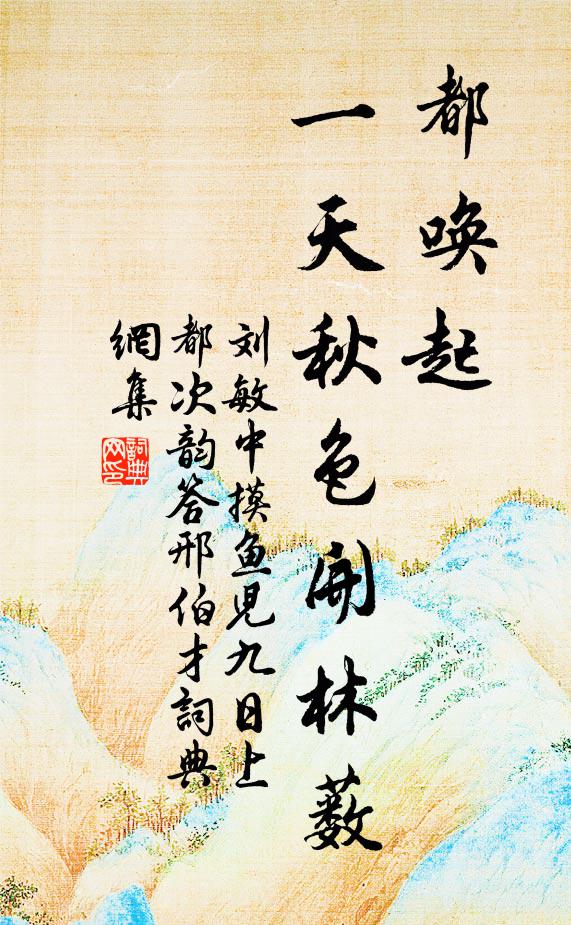 都唤起
一天秋色開林薮
刘敏中摸鱼児九日上
都次韵答邢伯才詞典
網集
詞典
网印